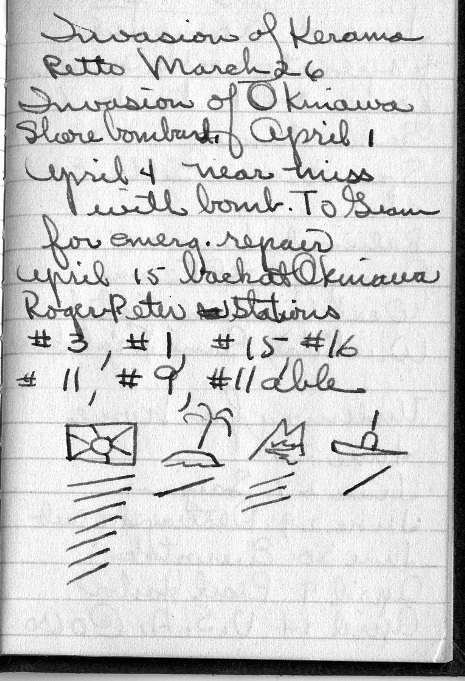 Invasion of Kerama
Retto March 26
Invasion of Okinawa
Shore bombard. April 1
April 4 near miss
with bomb. To Guam
for emerg. repair
April 15 back at Okinawa
Roger Peter Stations
# 3, # 1, # 15 # 16
# 11, # 9, # 11 able